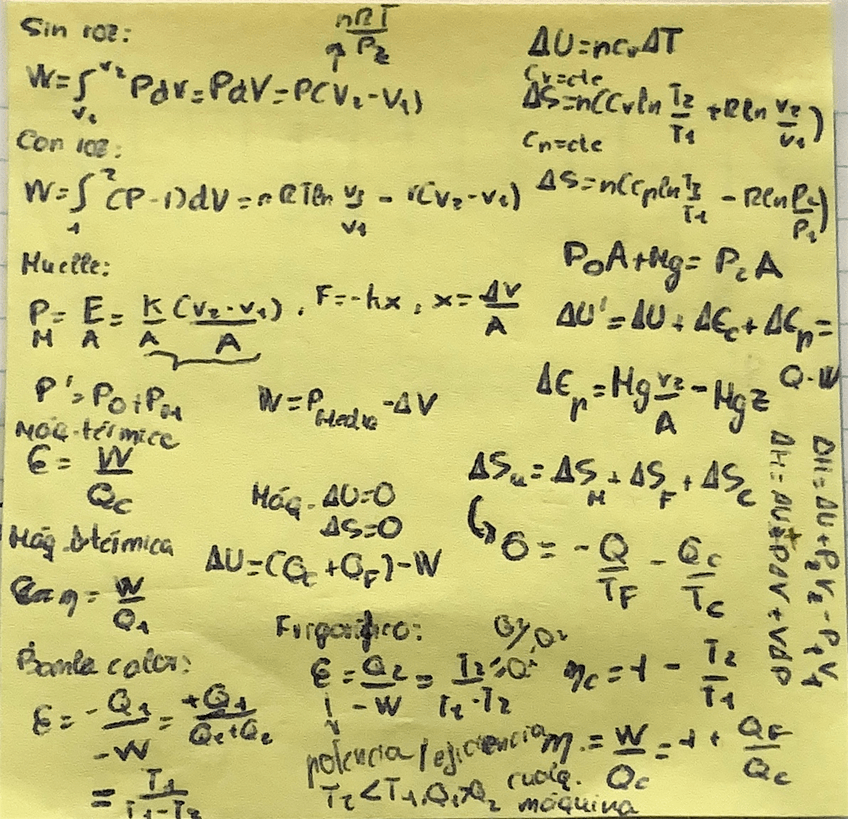 Sin roz:
nRT/P₂
W=∫v₁^v₂ Pdv=PdV=P(V₂-V₁)
Con roz:
W=∫₁²(P-1)dV=nRTln v₂/v₁ - 1(v₂-v₁)
Muelle:
P_M=E/A=K/A (v₂-v₁)/A, F=-kx, x=ΔV/A
P'=P₀+P_M W=P_Media-ΔV
Máq-térmica
ε=W/Q_C
Máq. ΔU=0
ΔS=0
Máq térmica
ΔU=(Q_C+Q_F)-W
η=W/Q₁
Bomba calor:
ε=-Q₁/-W=+Q₁/Q₁+Q₂
=T₁/T₁-T₂
Frigorífico:
ε=Q₂/-W=T₂/T₁-T₂
potencia/eficiencia
T₂<T₁, Q₁>Q₂
ΔU=ncᵥΔT
Cv=cte
ΔS=n(Cvln T₂/T₁+Rln v₂/v₁)
Cp=cte
ΔS=n(cpln T₂/T₁ - Rln P₂/P₁)
P₀A+Mg=P₂A
ΔU'=ΔU+ΔE_c+ΔE_p=
Q-W
ΔE_p=Mg v₂/A-Mgz
ΔS_u=ΔS_M+ΔS_F+ΔS_C
↳σ=-Q/T_F-Q_C/T_C
η_C=1-T₂/T₁
η=W/Q_C=1+Q_F/Q_C
cualq.
máquina
ΔH=ΔU+P₂V₂-P₁V₁
ΔH=ΔU+PdV+VdP